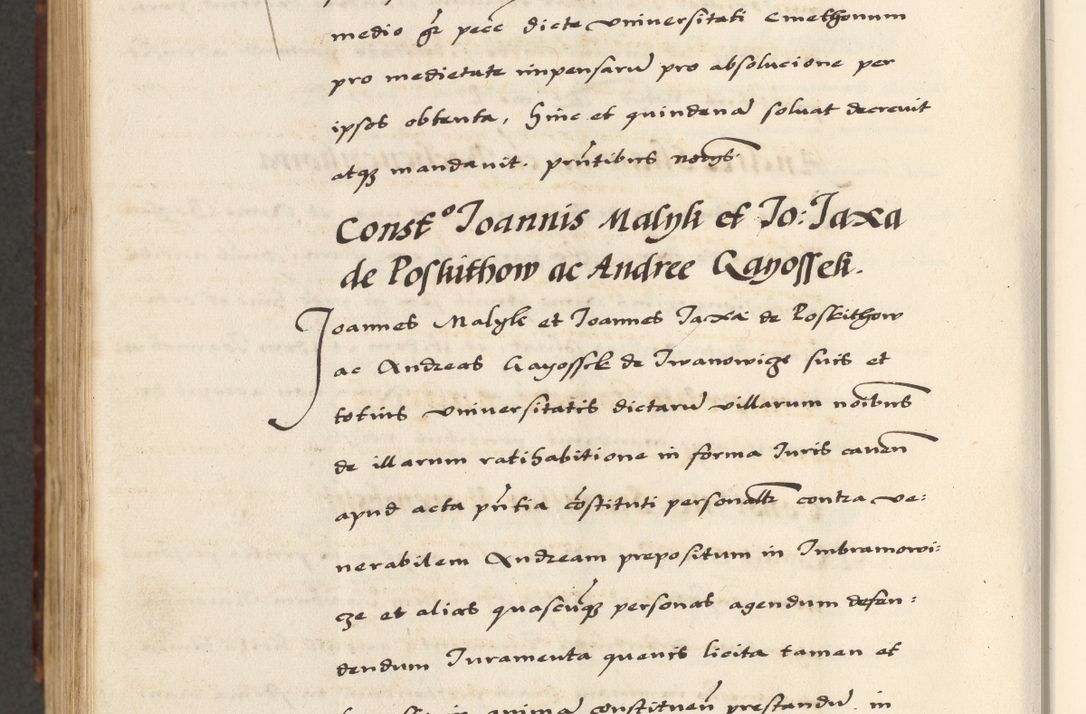 medio gr̄ pecē dicte universitati Cmethonum
pro medietate impensarū pro absolucione per
ipsos obtenta, hinc et quindenā solvat decrevit
atqȝ mandavit. prn̄tibus
Constº Joannis Malyk et Jo: Jaxa
de Poskithow ac Andree Gayossek.
Joannes Malyk et Joannes Jaxa de Poskithow
ac Andreas Gayossek de Iwanowicze suis et
totius universitatis dictarū villarum noībus
de illarum ratihabitione in forma Iuris caven̄
apud acta pn̄tia cōstituti personaltr contra ve:
nerabilem Andream prepositum in Imbramowi:
cze et alias quascūqȝ personas agendum defen:
dendum Iuramenta quevis licita tamen et
in animā constituen̄ prestandū in